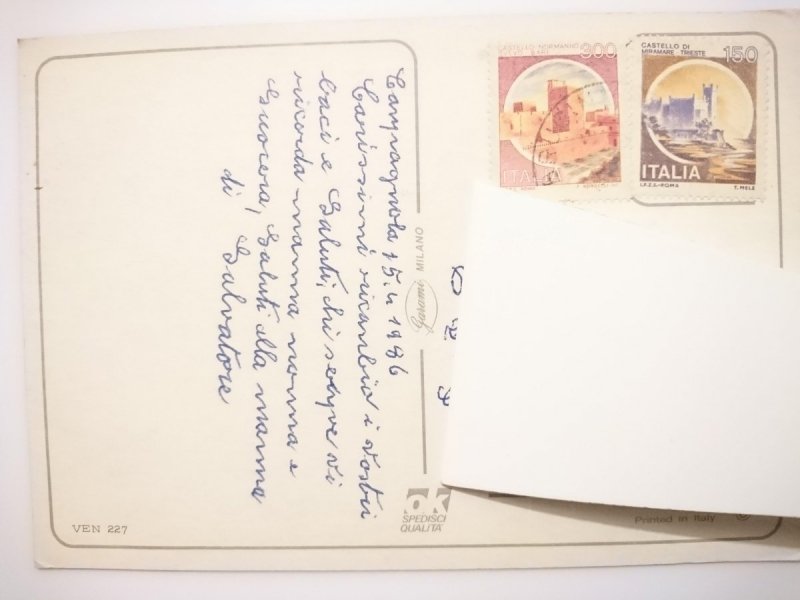 Campagnola 15.4 1986
Carissimi ricambio i vostri
baci e Saluti, chi sempre vi
ricorda mamma nonna e
Suocera, Saluti alla mamma
di Salvatore
CASTELLO NORMANNO
300
ITALIA
CASTELLO DI
MIRAMARE TRIESTE
150
ITALIA
I.P.Z.S.-ROMA
T. MELE
Garami MILANO
ok
SPEDISCI
QUALITÀ
VEN 227
Printed in Italy